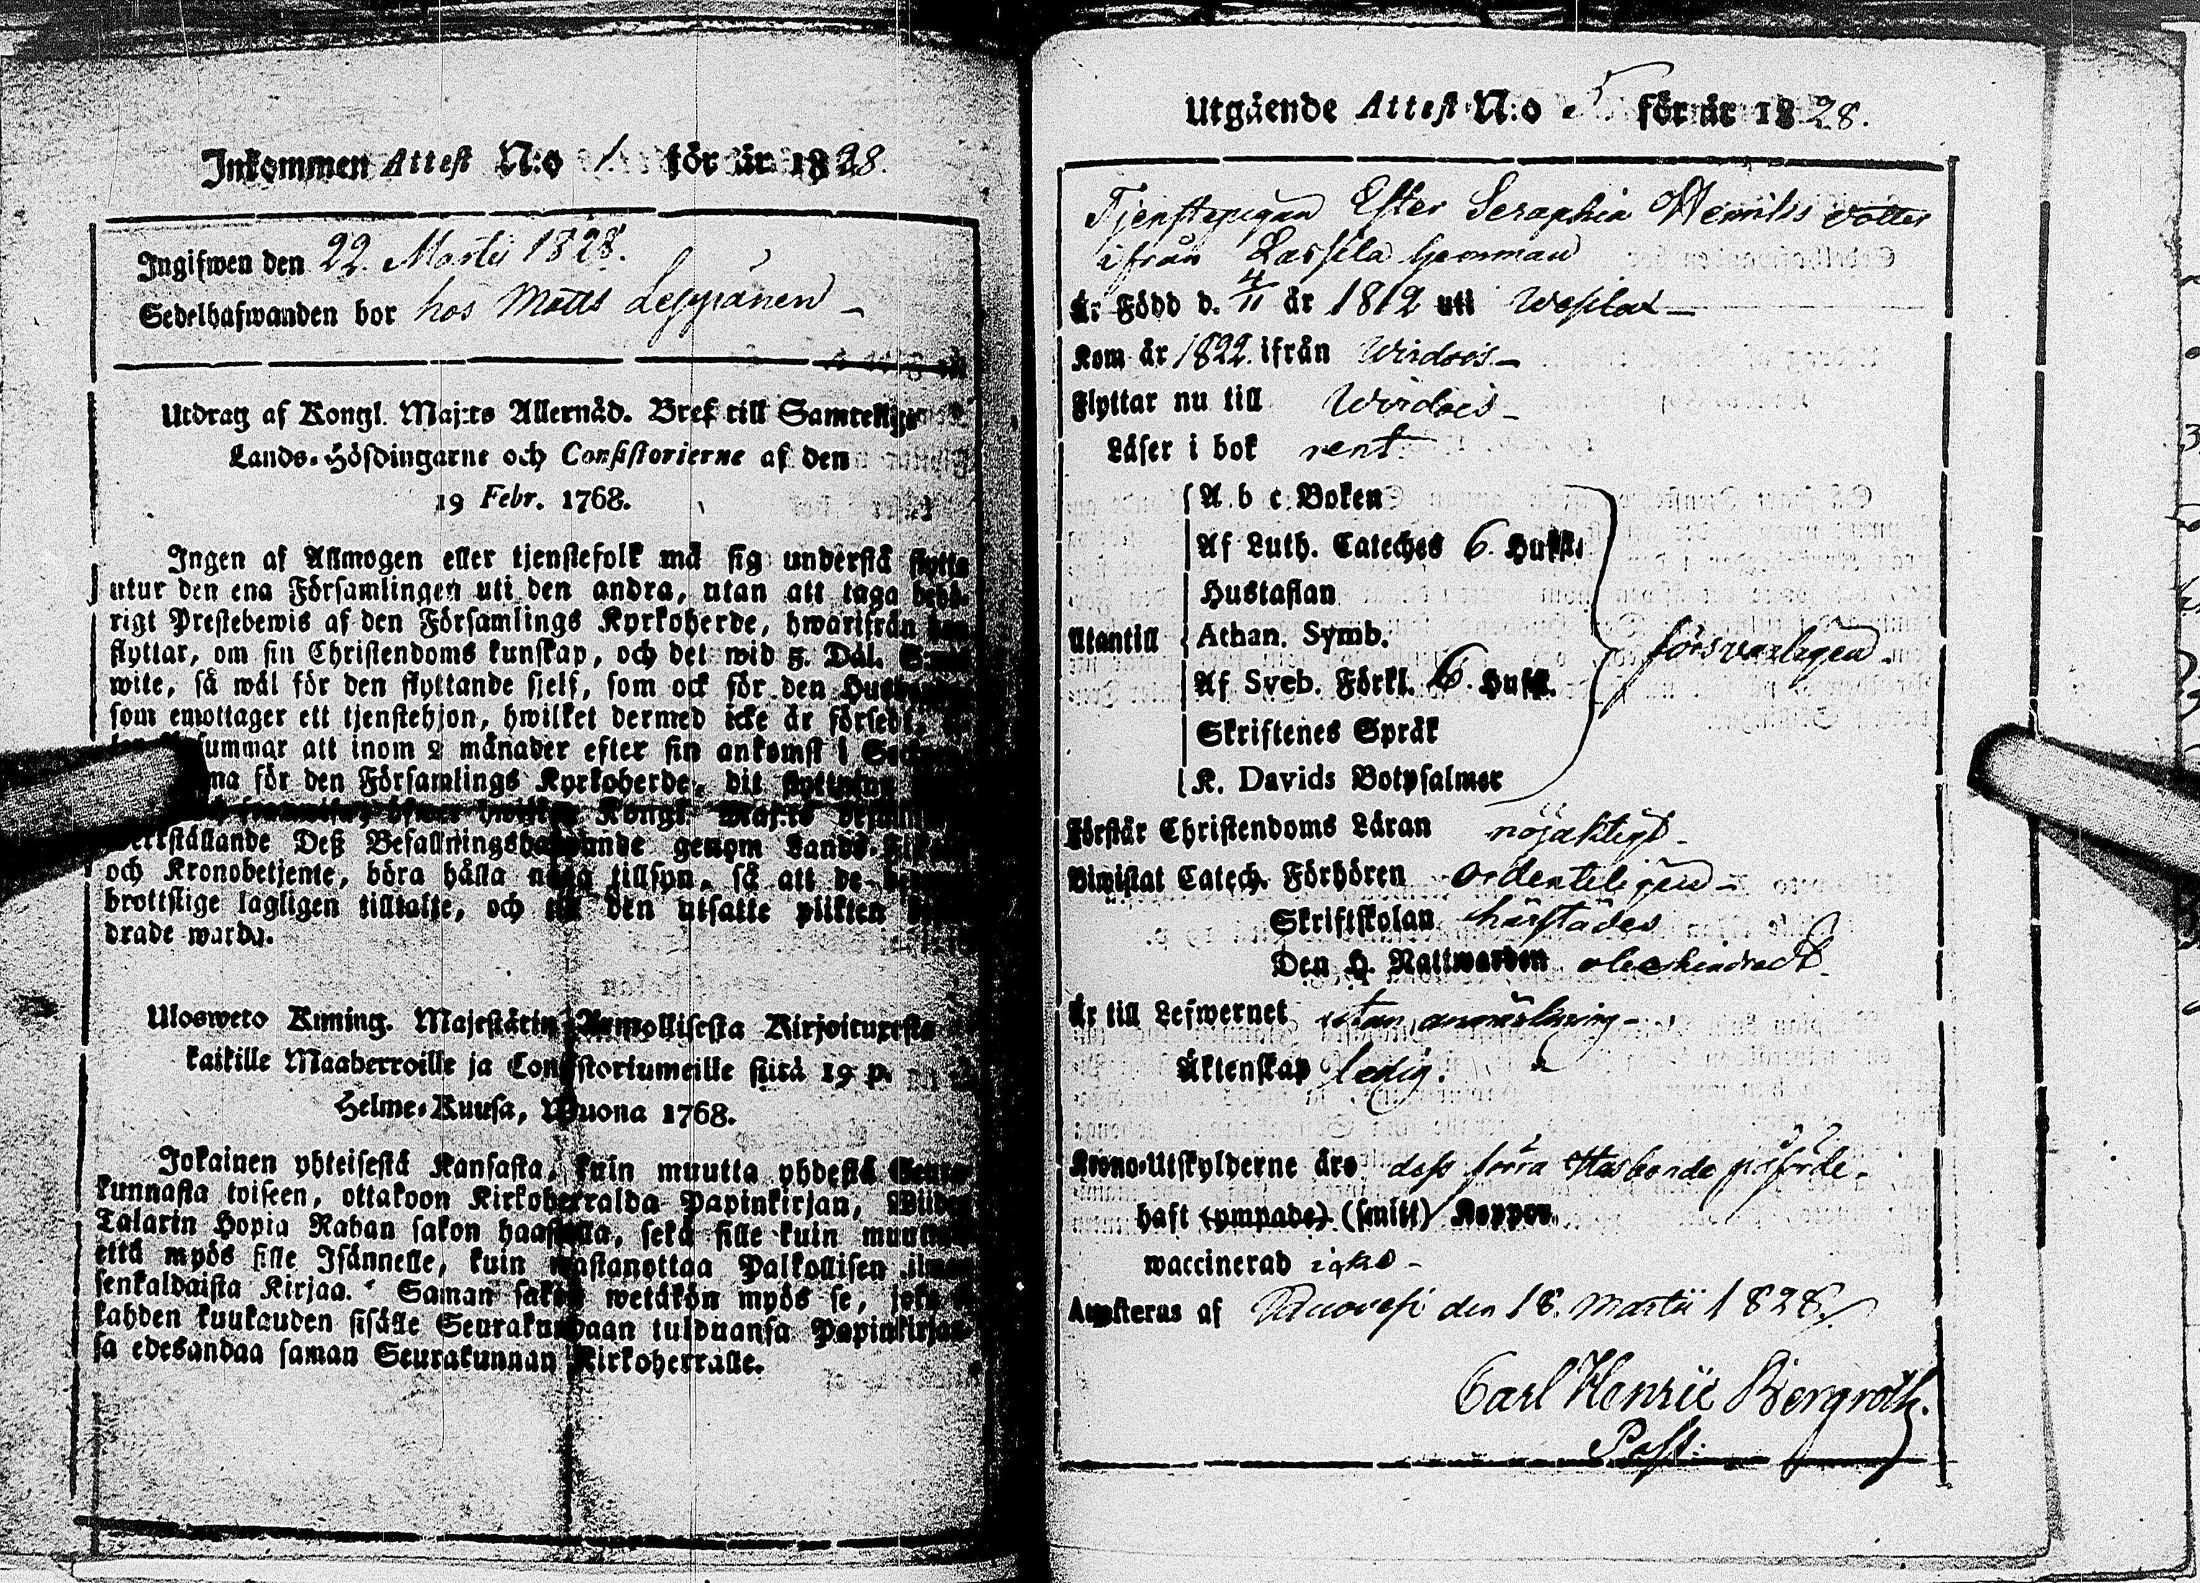 Inkommen Attest N:o 1. för år 1828.
Ingifwen den 22. Martii 1828.
Sedelhafwanden bor hos Matts Leppänen
Utdrag af Kongl. Maj:ts Allernåd. Bref till Samtellige
Lands-Höfdingarne och Consistorierne af den
19 Febr. 1768.
Ingen af Allmogen eller tjenstefolk må sig understå flytta
utur den ena Församlingen uti den andra, utan att taga behö-
rigt Prestebewis af den Församlings Kyrkoherde, hwarifrån han
flyttar, om sin Christendoms kunskap, och det wid 5. Dal. S:mt
wite, så wäl för den flyttande sjelf, som ock för den
som emottager ett tjenstehjon, hwilket dermed icke är försedt,
summar att inom 2 månader efter sin ankomst i
för den Församlings Kyrkoherde, dit
Kongl. Maj:ts
werkställande Deß Befallningshafwande genom Lands-
och Kronobetjente, böra hålla noga tillsyn, så att de
brottslige lagligen tilltalte, och till den utsatte plikten
drade warda.
Ulosweto Kuning. Majestätin Armollisesta Kirjoituxesta
kaikille Maaherroille ja Consistoriumeille siitä 19 p.
Helme-Kuusa, Wuona 1768.
Jokainen yhteisestä Kansasta, kuin muutta yhdestä Seura-
kunnasta toiseen, ottakoon Kirkoherralda Papinkirjan, Wiiden
Talarin Hopia Rahan sakon haastolla, sekä sille kuin muuttaa
että myös sille Isännelle, kuin wastanottaa Palkollisen ilman
senkaldaista Kirjaa. Saman sakon wetäkön myös se, joka ei
kahden kuukauden sisälle Seurakundaan tulduansa Papinkirjaan-
sa edesandaa saman Seurakunnan Kirkoherralle.
Utgående Attest N:o 5 för år 1828.
Tjenstepigan Ester Seraphia Henriks dotter
ifrån Lassila hemman
Är Född d. 4/11 år 1812 uti Wesilax
Kom år 1822. ifrån Wirdois
Flyttar nu till Wirdois
Läser i bok rent
A b c Boken
Af Luth. Cateches 6. Hufst.
Hustaflan
Utantill Athan. Symb.
Af Sveb. Förkl. 6. Hufst.
Skriftenes Språk
K. Davids Botpsalmer
försvarligen
Förstår Christendoms Läran nöjaktigt
Biwistat Catech. Förhören ordenteligen
Skriftskolan härstädes
Den H. Nattwarden obehindradt
Är till Lefwernet utan anmärkning
Äktenskap ledig.
Krono-Utskylderne äro dess förra Husbonde påförde.
haft (ympade) (smitt) Koppor.
waccinerad icke
Attesteras af Ruovesi den 18. Martii 1828.
Carl Henric Bergroth.
Past: